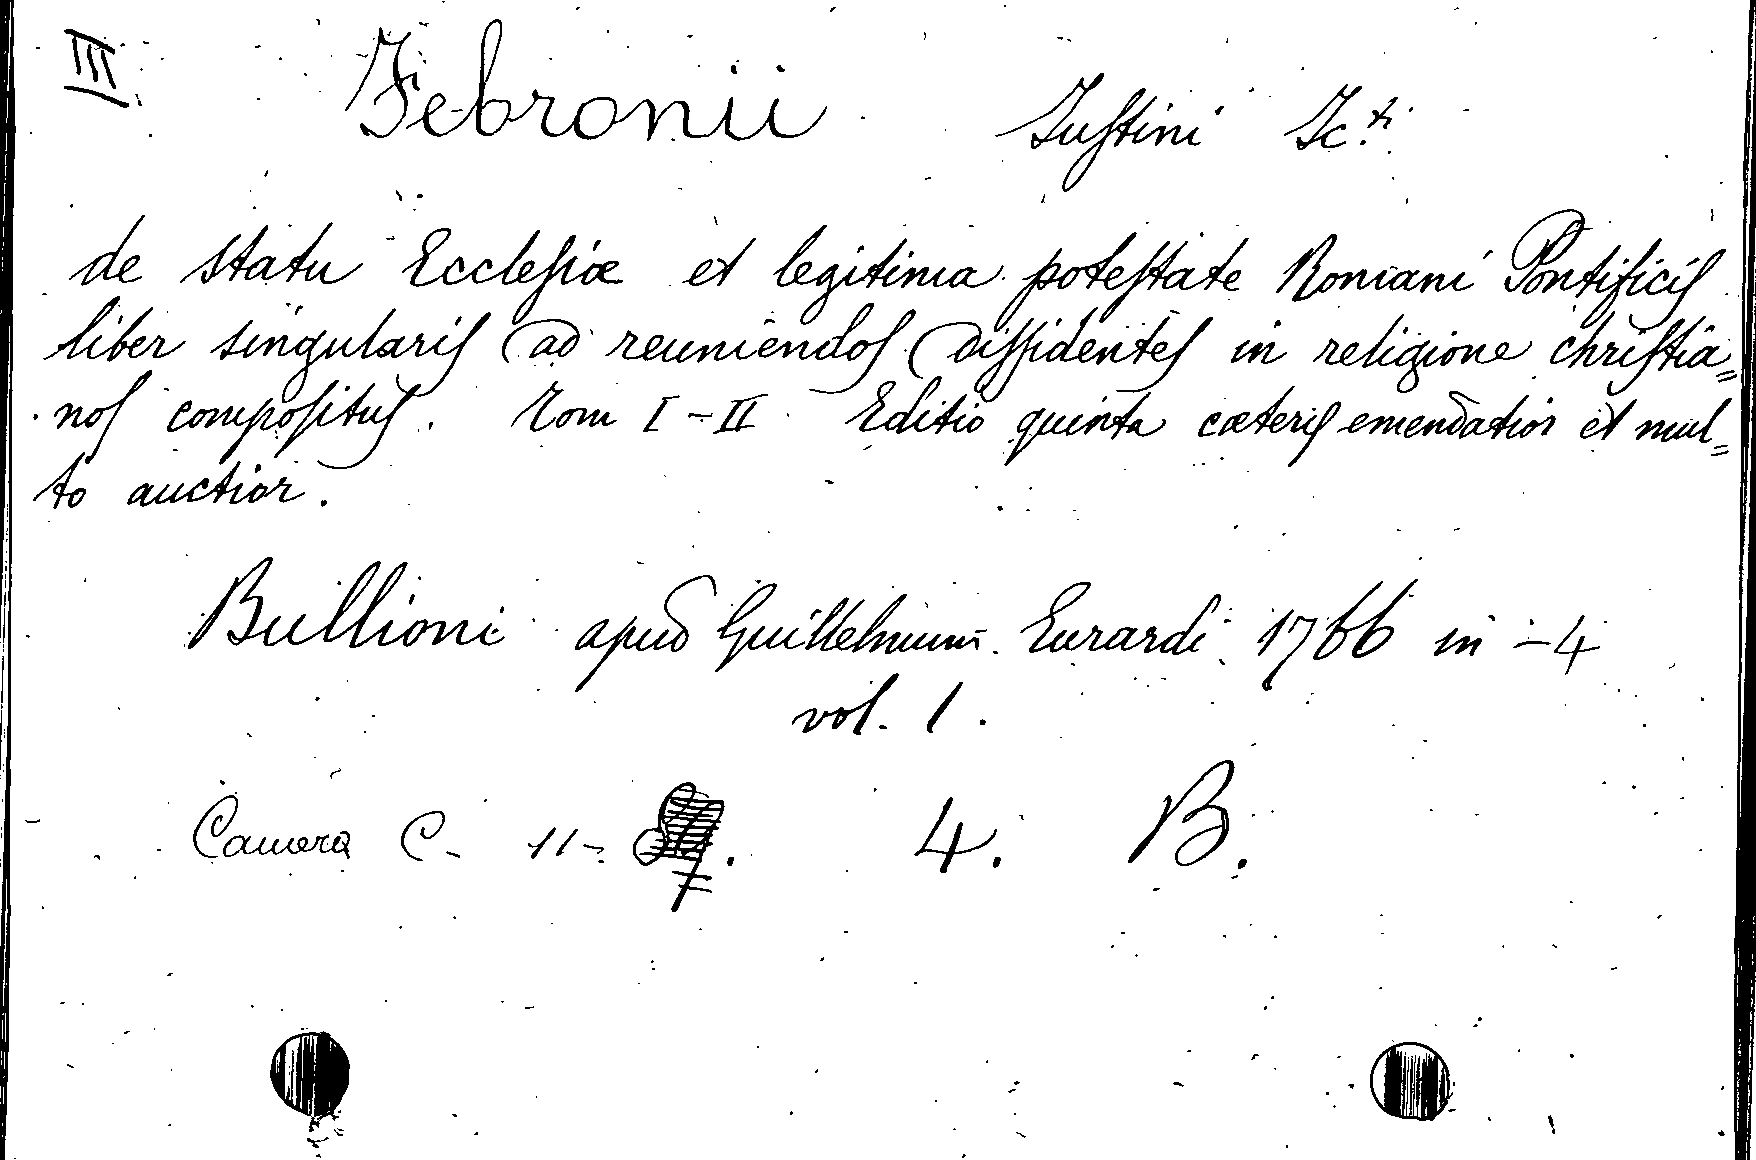 III Febronii Justini Jc.ti
de statu Ecclesiæ et legitima potestate Romani Pontificis
liber singularis ad reuniendos dissidentes in religione christia=
nos compositus. Tom I-II Editio quinta cæteris emendatior et mul=
to auctior.
Bullioni apud Guillelmum Evrardi 1766 in -4
vol. 1.
Camera C- 11-. 4. B.